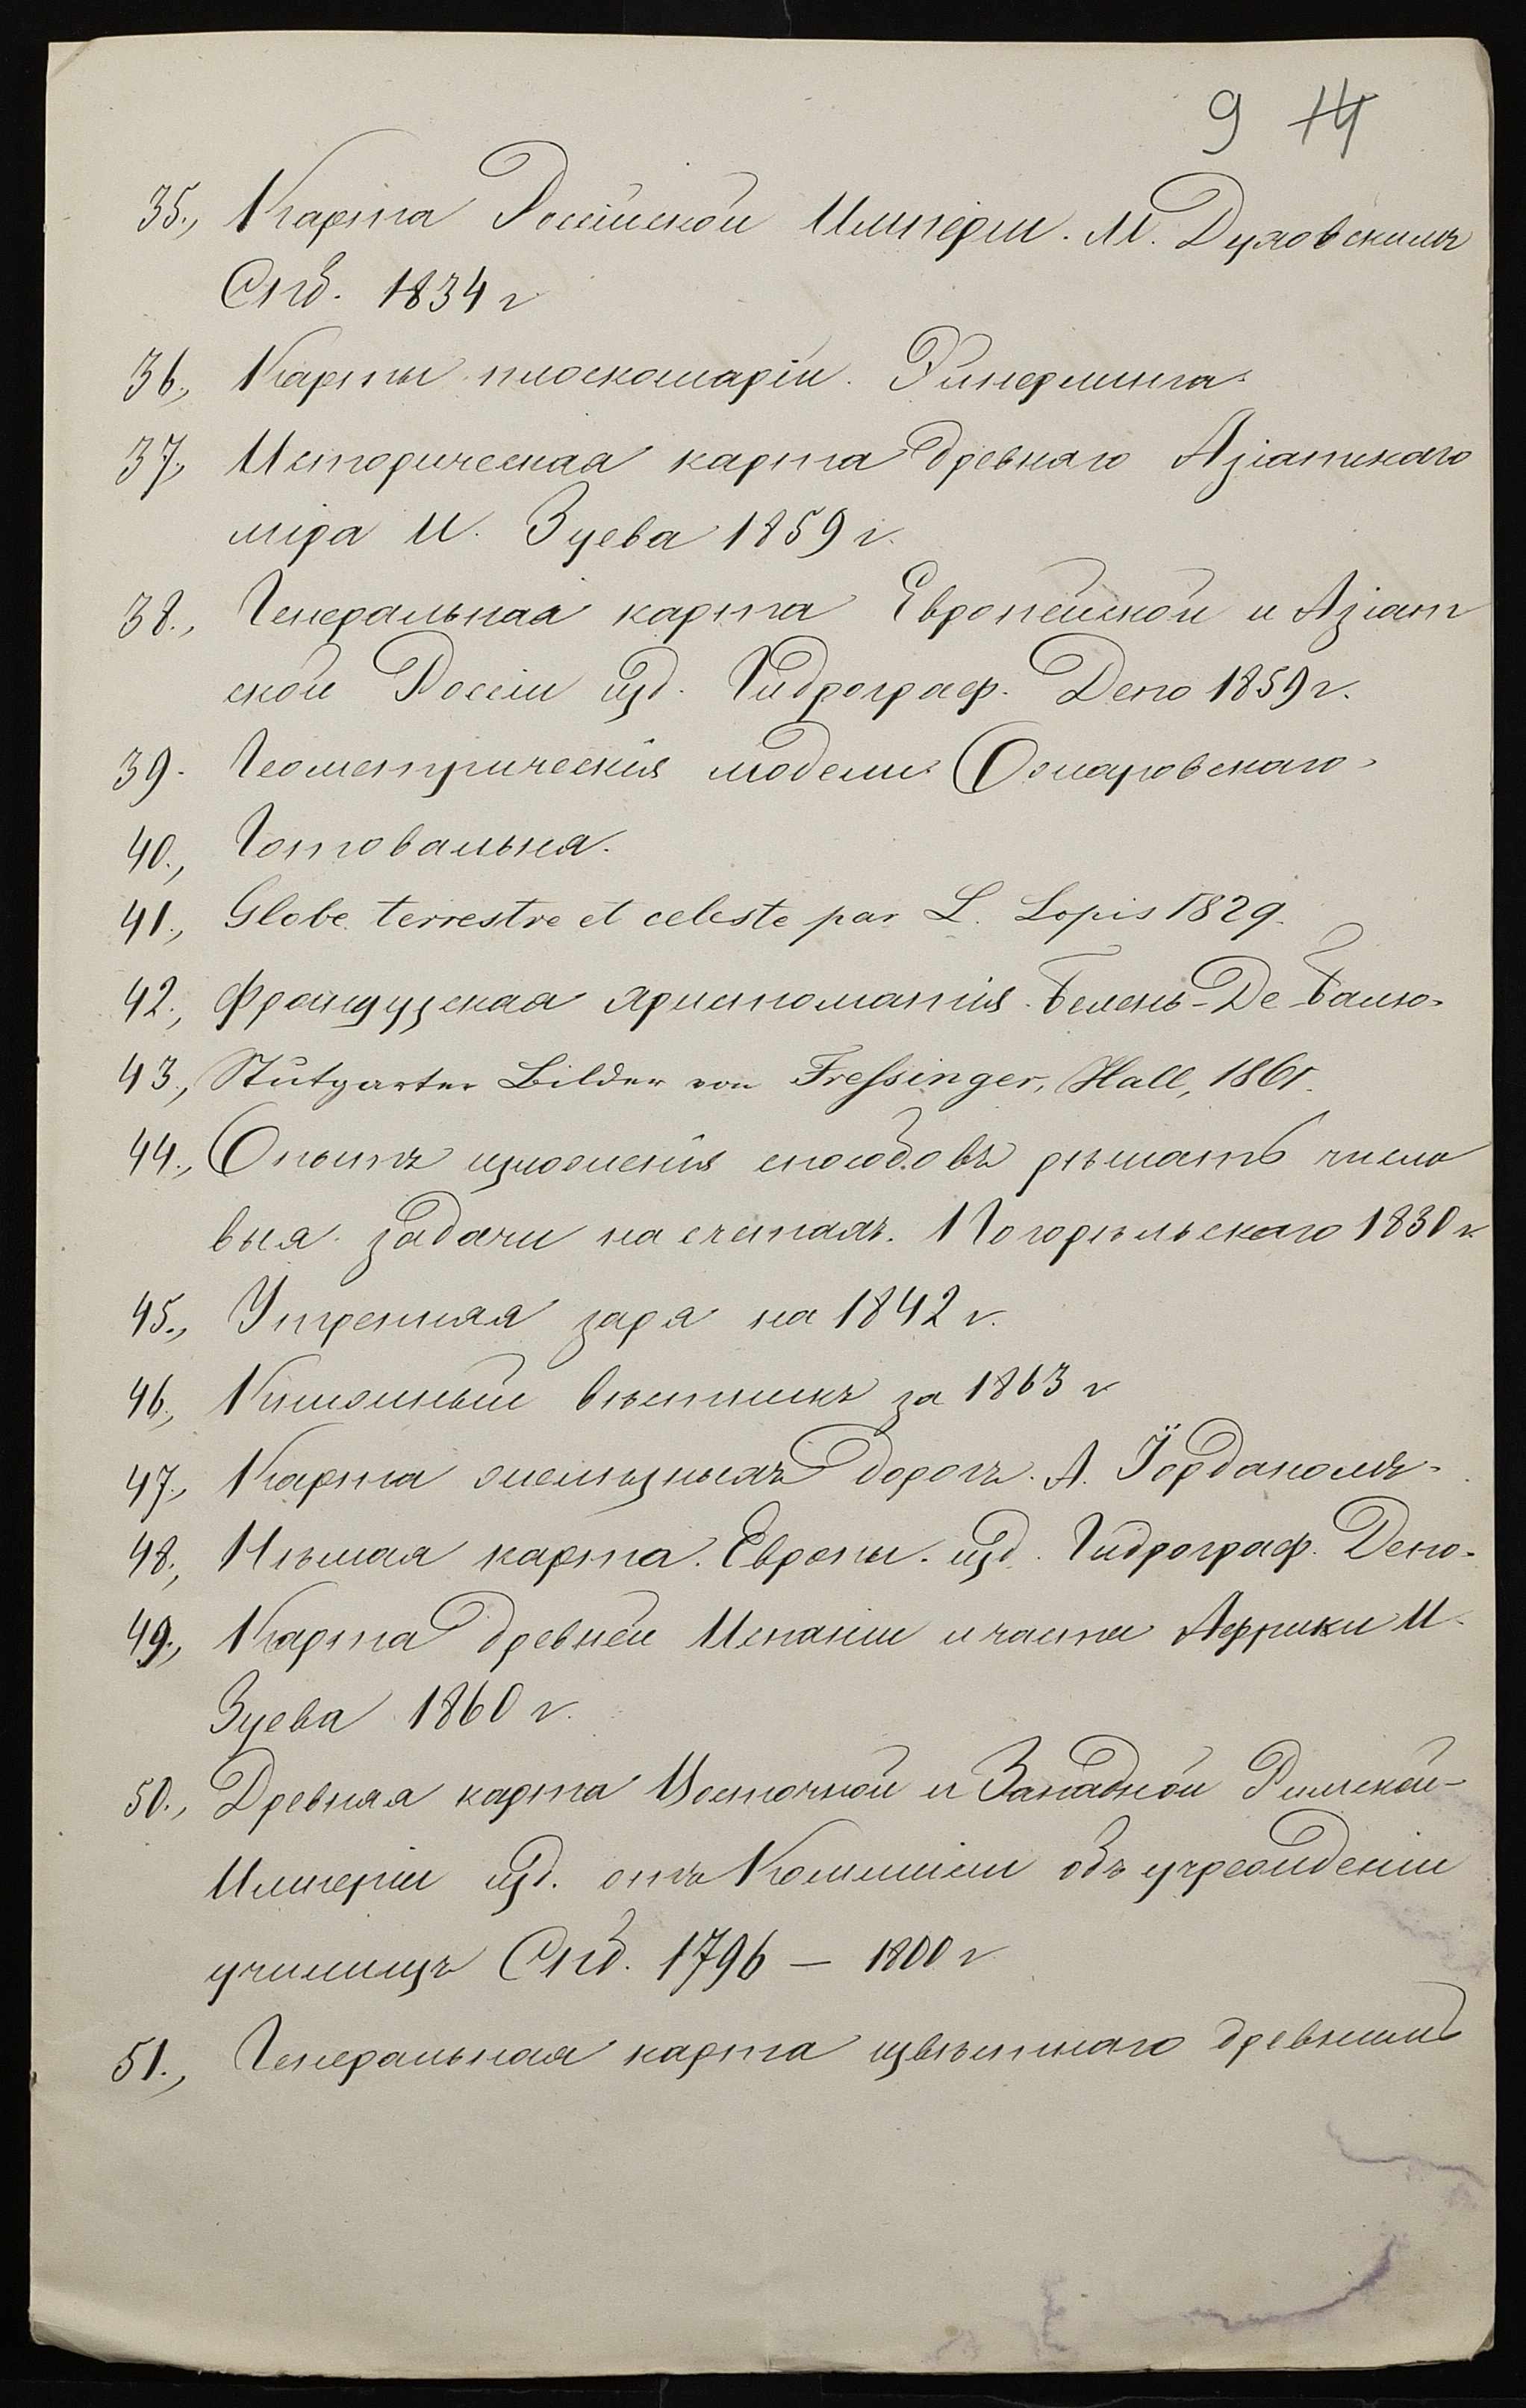 9 14
35., Карта Россійской Имперіи. М. Духовскимъ
Спб. 1834 г
36., Карты плоскошарій. Кинермина.
37., Историческая карта древняго Азіатскаго
міра И. Зуева 1859 г.
38., Генеральная карта Европейской и Азіат
ской Россіи изд. Гидрограф. Депо 1859 г.
39. Геометрическія модели Ожаровскаго.
40., Готовальня.
41., Globe terrestre et celeste par L. Lopis 1829.
42., Французская христоматія. Белень-Де Балю.
43., Stutgarter Bilder von Fressinger, Hall, 1861.
44., Опытъ изложенія способовъ рѣшать число
выя задачи на счетахъ. Погорѣльскаго 1830 г.
45., Утренняя заря на 1842 г.
46., Книжный вѣстникъ за 1863 г
47., Карта желѣзныхъ дорогъ. А. Іорданомъ.
48., Нѣмая карта. Европы. изд. Гидрограф. Депо.
49., Карта древней Испаніи и части Африки И.
Зуева 1860 г.
50., Древняя карта Восточной и Западной Римской
Имперіи изд. отъ Коммисіи объ учрежденіи
училищъ Спб. 1796 — 1800 г
51., Генеральная карта извѣстнаго древнимъ